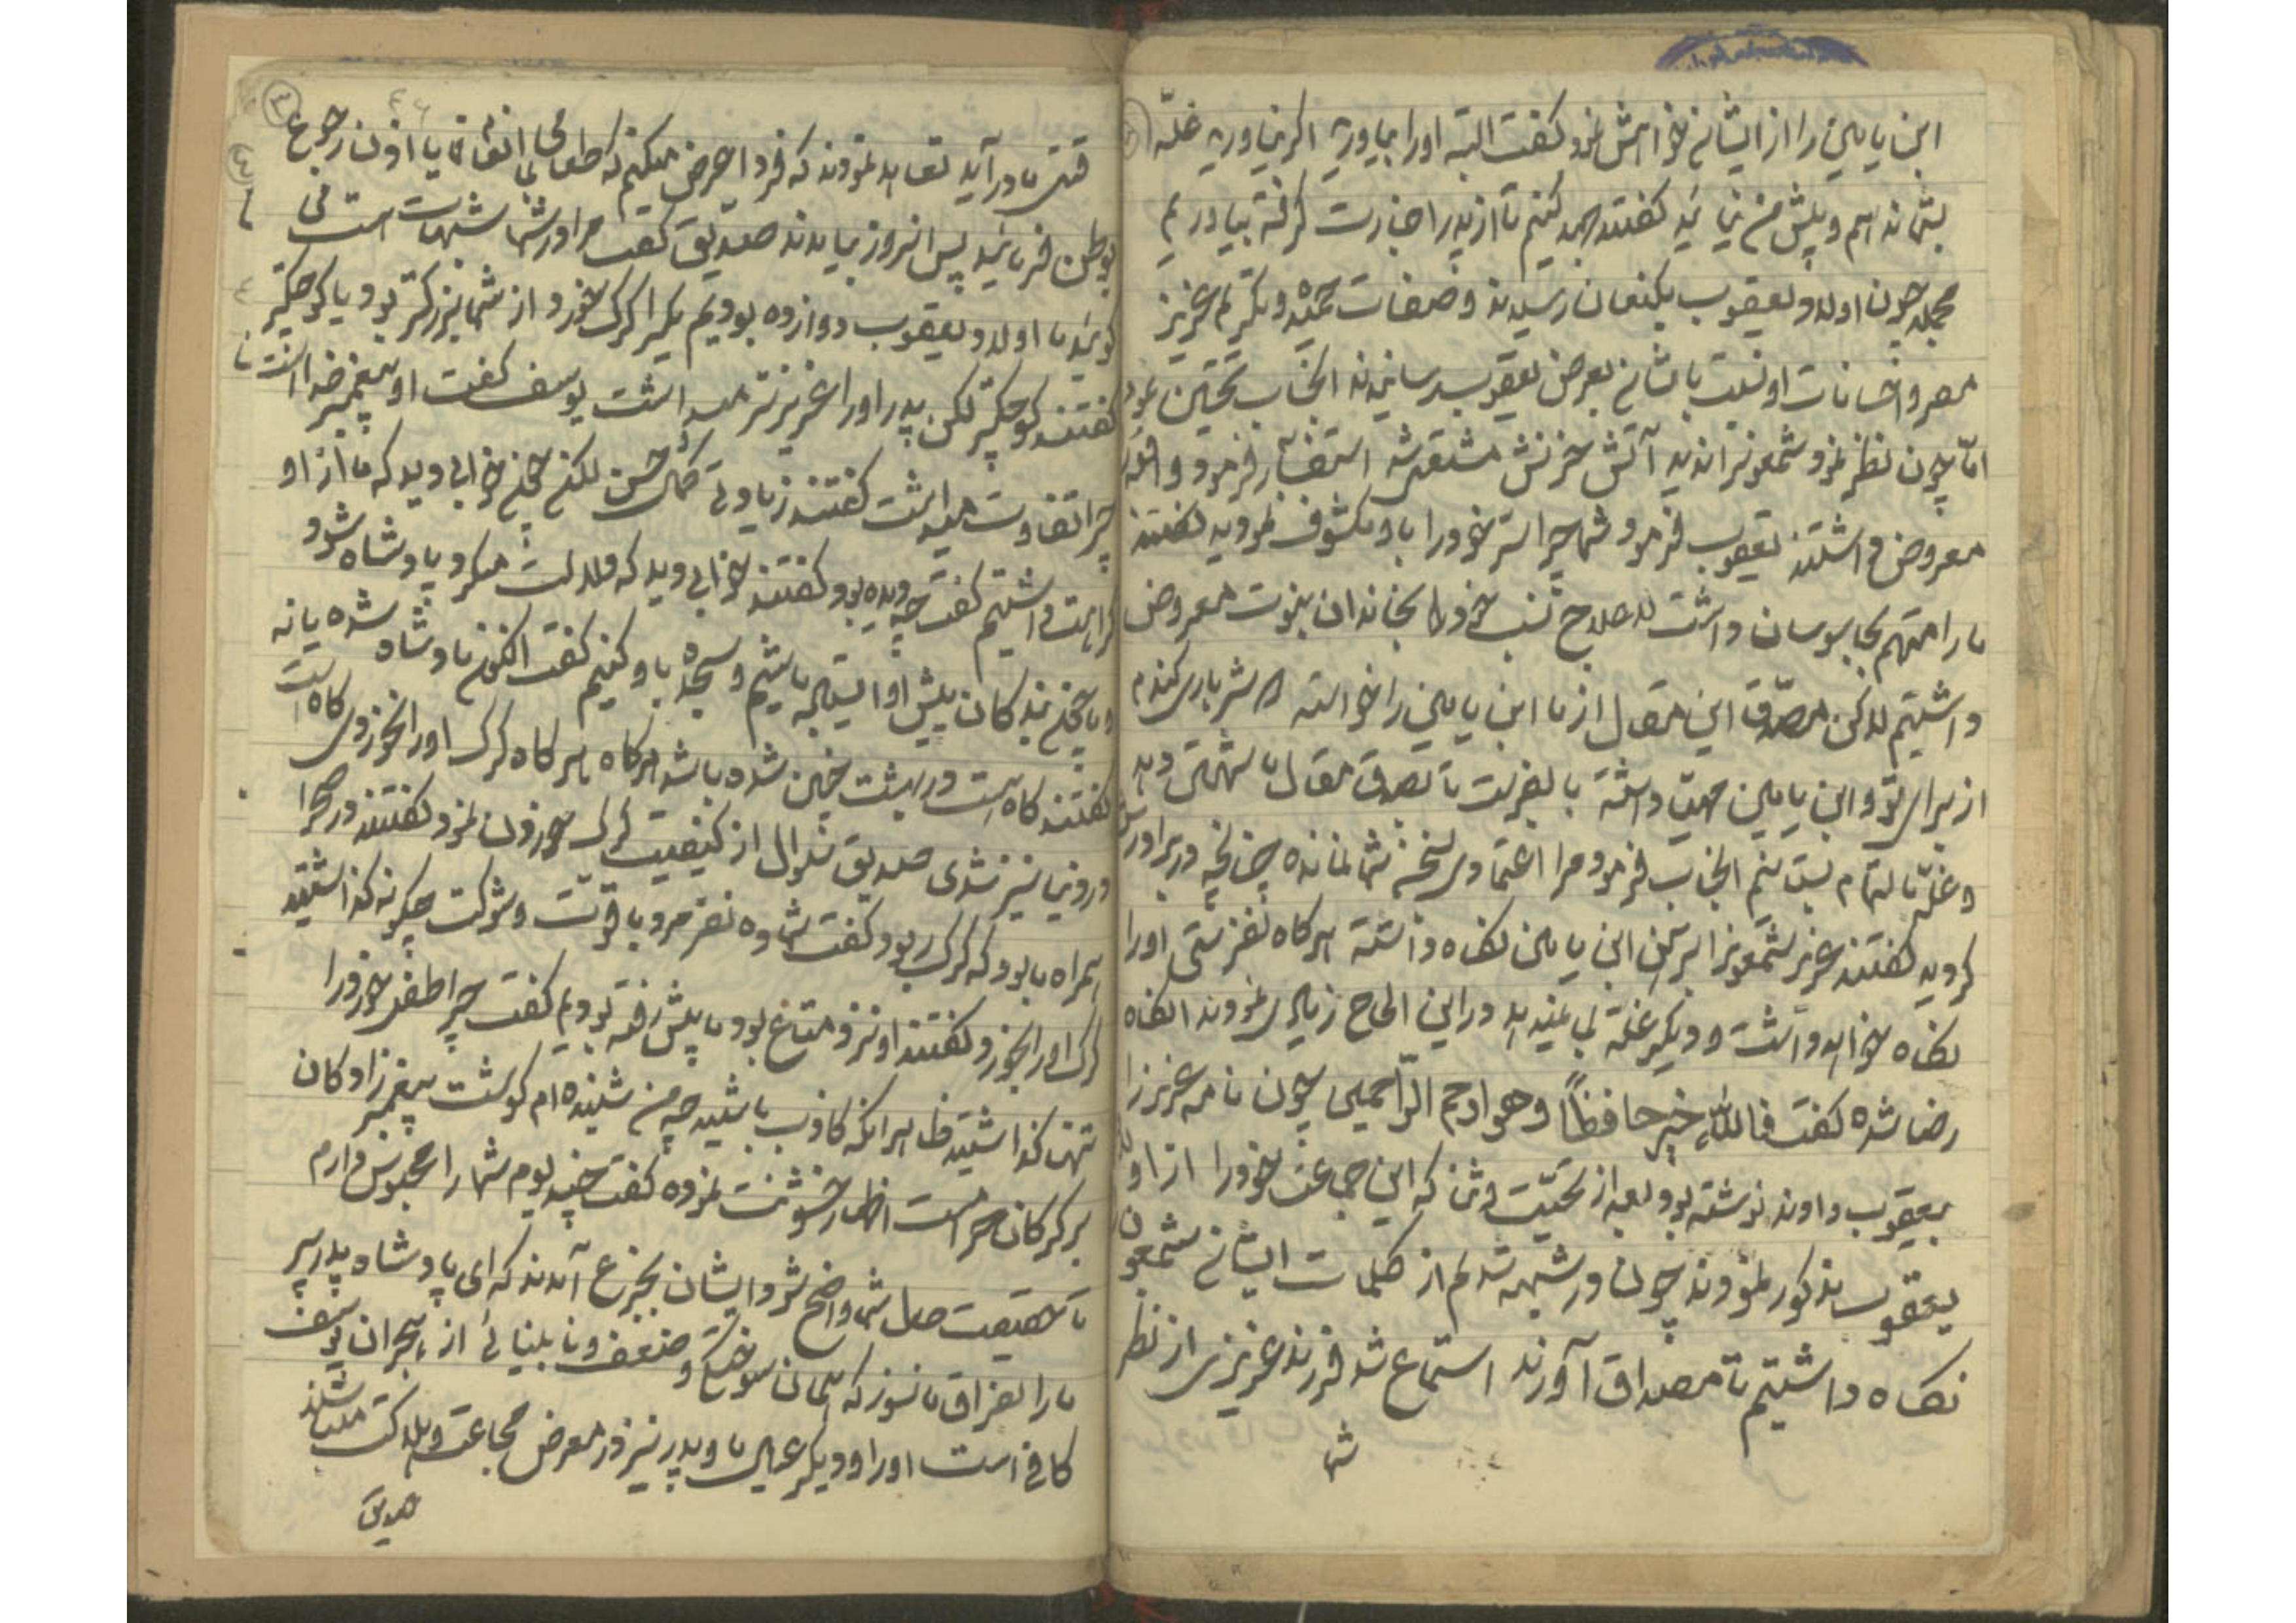 ابن یامین را از ایشان خواهش نمود گفت البته اورا بیاورید اگر نیاورید غلّه
بشما ندهم و پیش من نیائید گفتند جهد کنیم تا از پدر اجازت گرفته بیاوریم
مجملا چون اولاد یعقوب بکنعان رسیدند و صفات حمیده و تکریم عزیز
مصر و احسانات او نسبت بایشان بعرض یعقوب رسانیدند انجناب تحسین نمود
امّا چون نظر نمود شمعونرا ندید آتش حزنش مشتعل شد استفسار فرمود واقعه
معروض داشتند یعقوب فرمود شما چرا ستر خود را باو مکشوف نمودید گفتند
ما را متهم بجاسوسان داشت لاعلاج نسب خود را بخاندان نبوت معروض
داشتیم لاکن مصدّق این مقال از ما ابن یامین را خواسته شتر باری گندم
از برای تو و ابن یامین مهیّا داشته بالضرورت تا تصدیق مقال ما شهادتی دهد
و غلّه بالتمام بستانیم انجناب فرمود مرا اعتمادی بسخن شما نمانده چنانچه در برادرش
کردید گفتند عزیز شمعونرا برهن ابن یامین نگاه داشته هرگاه نفرستی اورا
نگاه خواهد داشت و دیگر غلّه بما نمیدهد در این الحاح زیادی نمودند آنگاه
رضا شده گفت فالله خیر حافظاً و هو ارحم الراحمین چون نامه عزیز را
بیعقوب دادند نوشته بود بعد از تحیّت و ثنا که این جماعت خود را از اولاد
یعقوب مذکور نمودند چون در شبهه شدم از کلمات ایشان شمعون
نگاه داشتیم تا مصداق آورند استماع شد فرزند عزیزی از نظر
شما
٣
٤٦
قتی مادر آید تعاهد نمودند که فردا عرض میکنیم که طعامی انفاق یا اذن رجوع
بوطن فرمائید پس انروز بیامدند صدیق گفت مرا در شما شبهات است می
گوئید ما اولاد یعقوب دوازده بودیم یکیرا گرگ خورد از شما بزرگتر بود یا کوچکتر
گفتند کوچکتر لکن پدر اورا عزیزتر میداشت یوسف گفت او پیغمبر خداست
چرا تفاوت میداشت گفتند زیادتی کمال حسن لکن چنین خوابی دید که ما از او
کراهت داشتیم گفت چه دیده بود گفتند خوابی دید که دلالت میکرد پادشاه شود
و ما چون بندگان پیش او ایستاده باشیم و سجده باو کنیم گفت اکنون پادشاه شده یا نه
گفتند گاه است در بهشت چنین شده باشد هرگاه هرگاه گرگ اورا نخوردی گاه است
در دنیا نیز شدی صدیق سؤال از کیفیت گرگ خوردن نمود گفتند در صحرا
همراه ما بود که گرگ ربود گفت شما ده نفر مرد با قوّت و شوکت چگونه گذاشتید
گرگ اورا بخورد گفتند او نزد متاع بود ما پیش رفته بودیم گفت چرا طفل خود را
تنها گذاشتید ظاهرا آنکه کاذب باشید چه من شنیده‌ام گوشت پیغمبرزادگان
بر گرگان حرامست اظهار خشونت نموده گفت چند یوم شما را محبوس دارم
تا حقیقت حال شما واضح شود ایشان بجزع آمدند که ای پادشاه پدر پیر
ما را بفراق ما نسوز که همان سوختگی و ضعف و نابینائی از هجران یوسف
کافی است اورا و دیگر عیال ما و پدر نیز در معرض مجاعت و هلاکت میباشند
صدیق